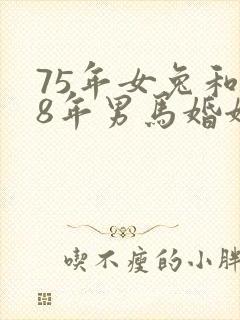 75年女兔和
8年男馬婚
喫不瘦的小胖